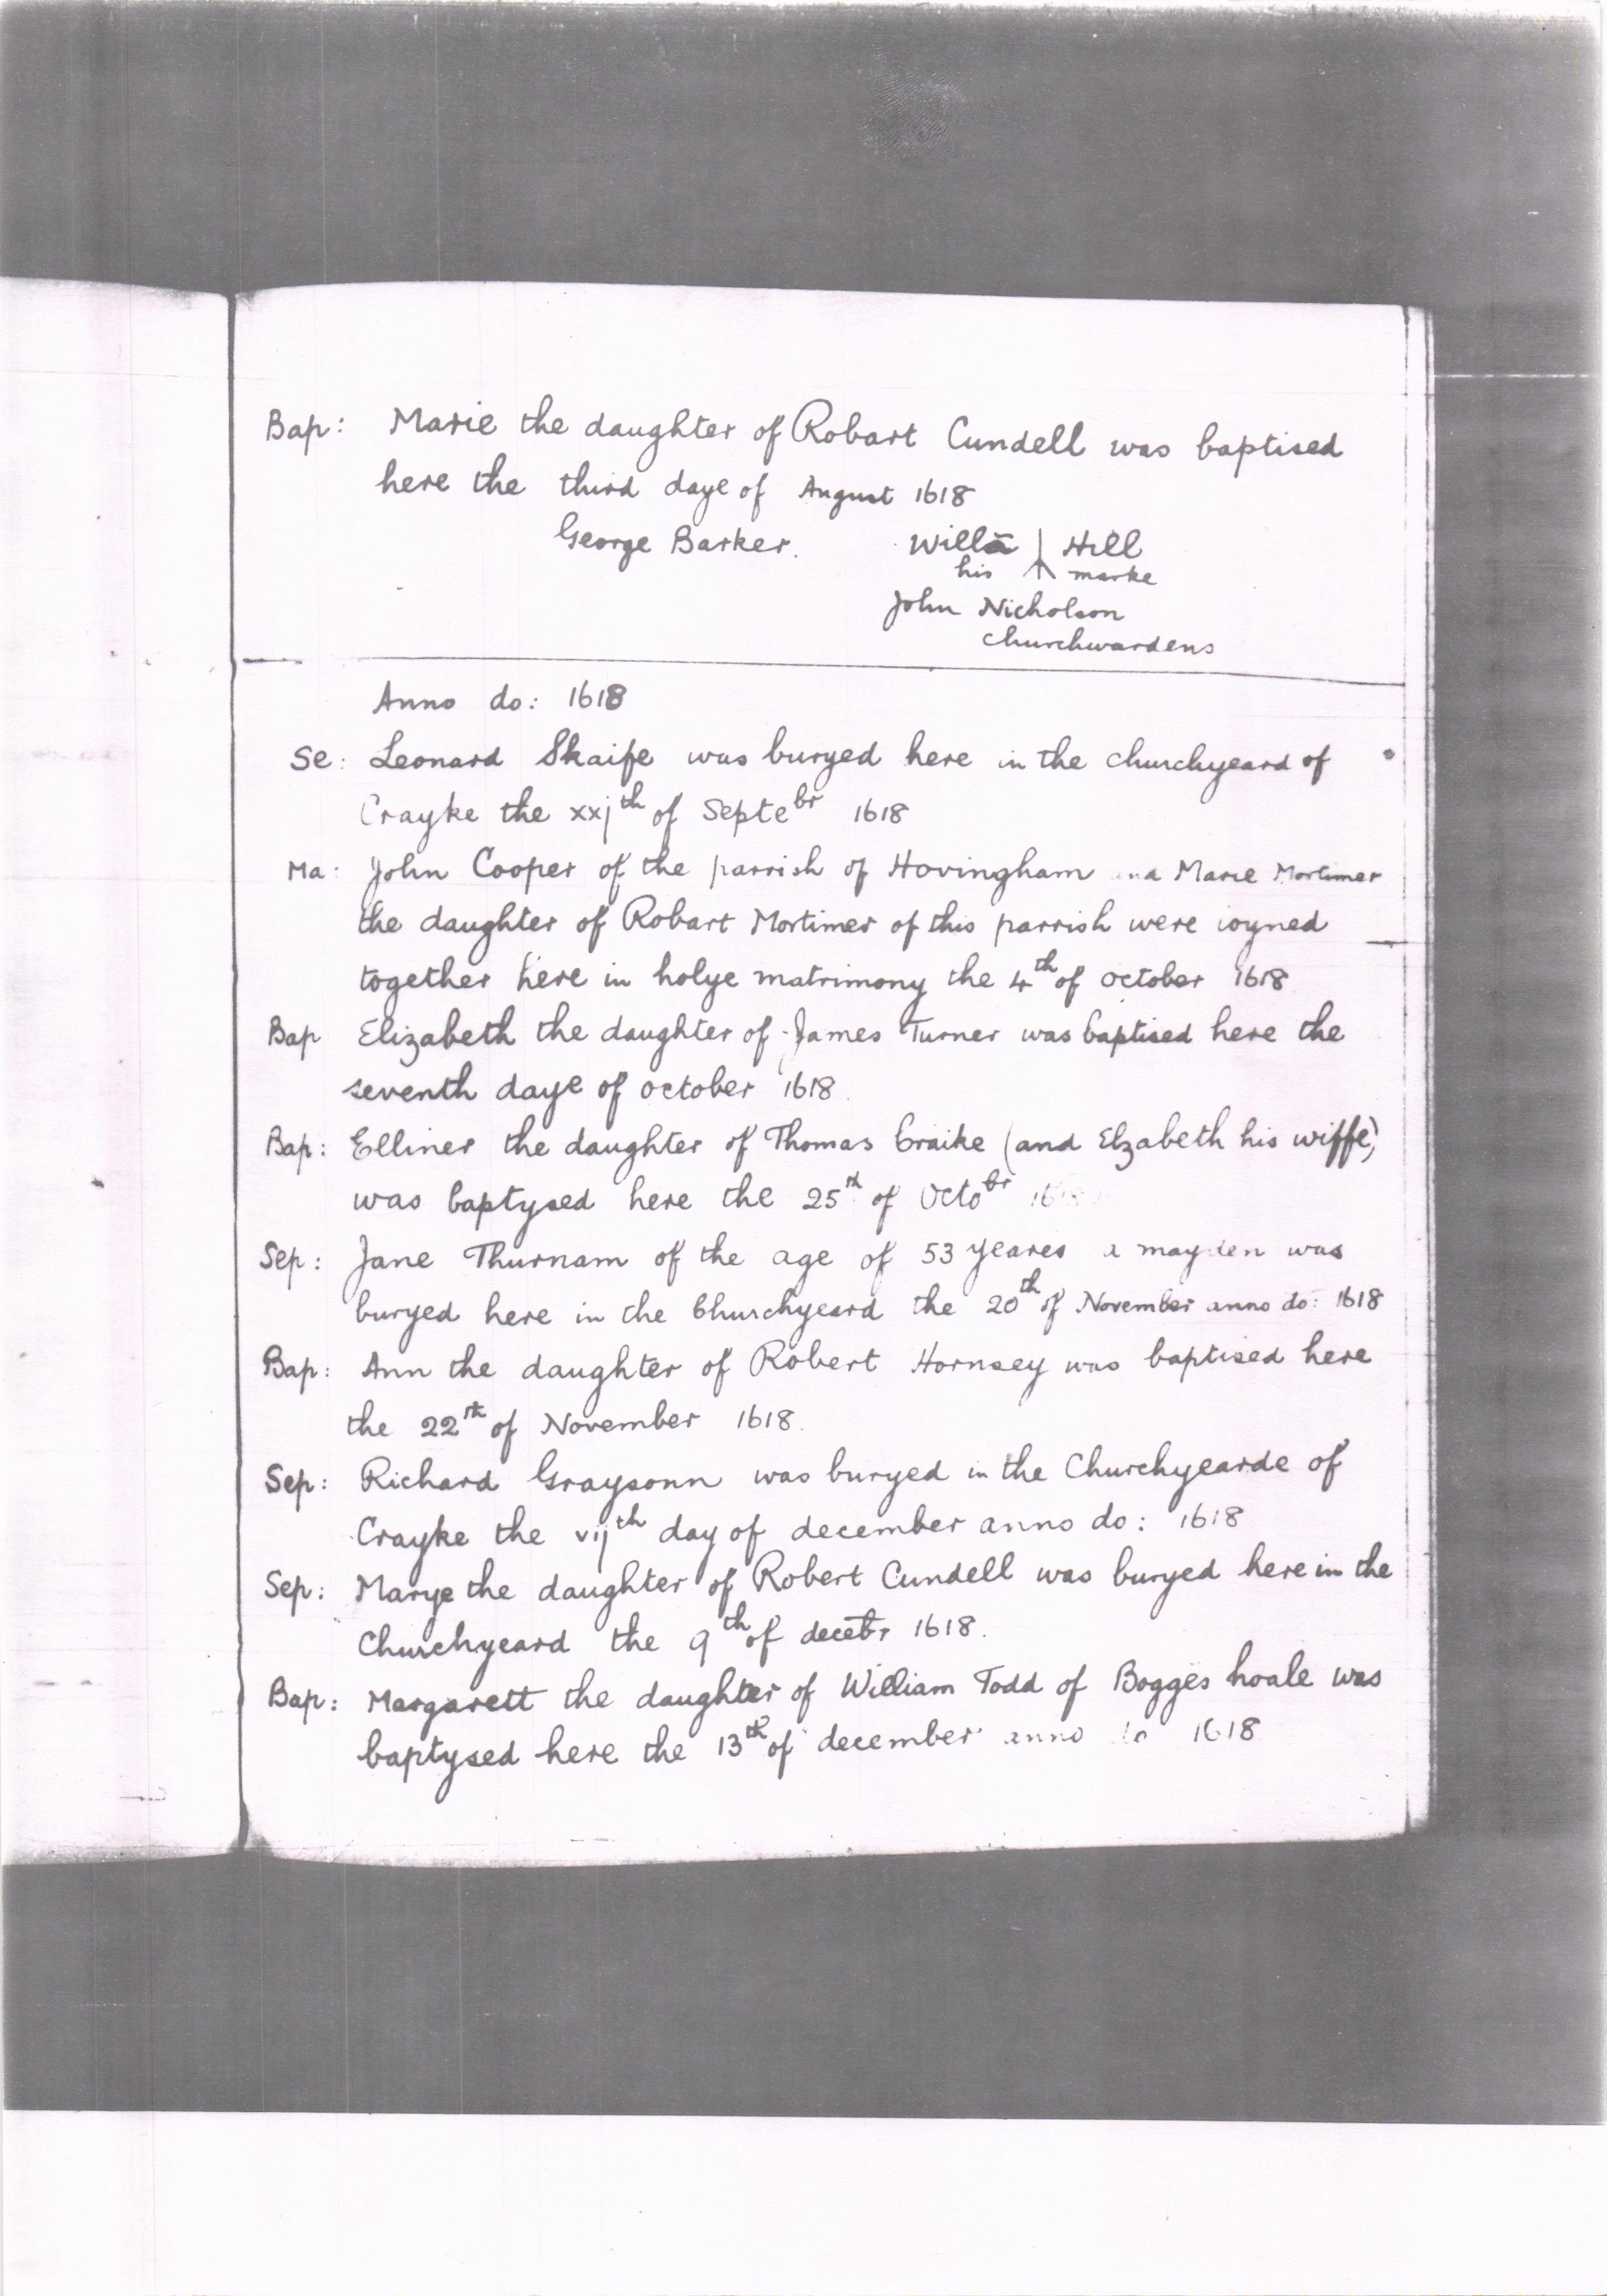 Bap: Marie the daughter of Robart Cundell was baptised
here the third daye of August 1618
George Barker. Willā Hill
his marke
John Nicholson
churchwardens
Anno do: 1618
Se: Leonard Skaife was buryed here in the churchyeard of
Crayke the xxjth of Septebr 1618
Ma: John Cooper of the parrish of Hovingham and Marie Mortimer
the daughter of Robart Mortimer of this parrish were ioyned
together here in holye matrimony the 4th of october 1618
Bap Elizabeth the daughter of James Turner was baptised here the
seventh daye of october 1618.
Bap: Elliner the daughter of Thomas Craike (and Elzabeth his wiffe)
was baptysed here the 25th of Octobr 1618
Sep: Jane Thurnam of the age of 53 yeares a mayden was
buryed here in the Churchyeard the 20th of November anno do: 1618
Bap: Ann the daughter of Robert Hornsey was baptised here
the 22th of November 1618.
Sep: Richard Graysonn was buryed in the Churchyearde of
Crayke the vijth day of december anno do: 1618
Sep: Marye the daughter of Robert Cundell was buryed here in the
Churchyeard the 9th of decebr 1618.
Bap: Margarett the daughter of William Todd of Bogges hoale was
baptysed here the 13th of december anno do 1618